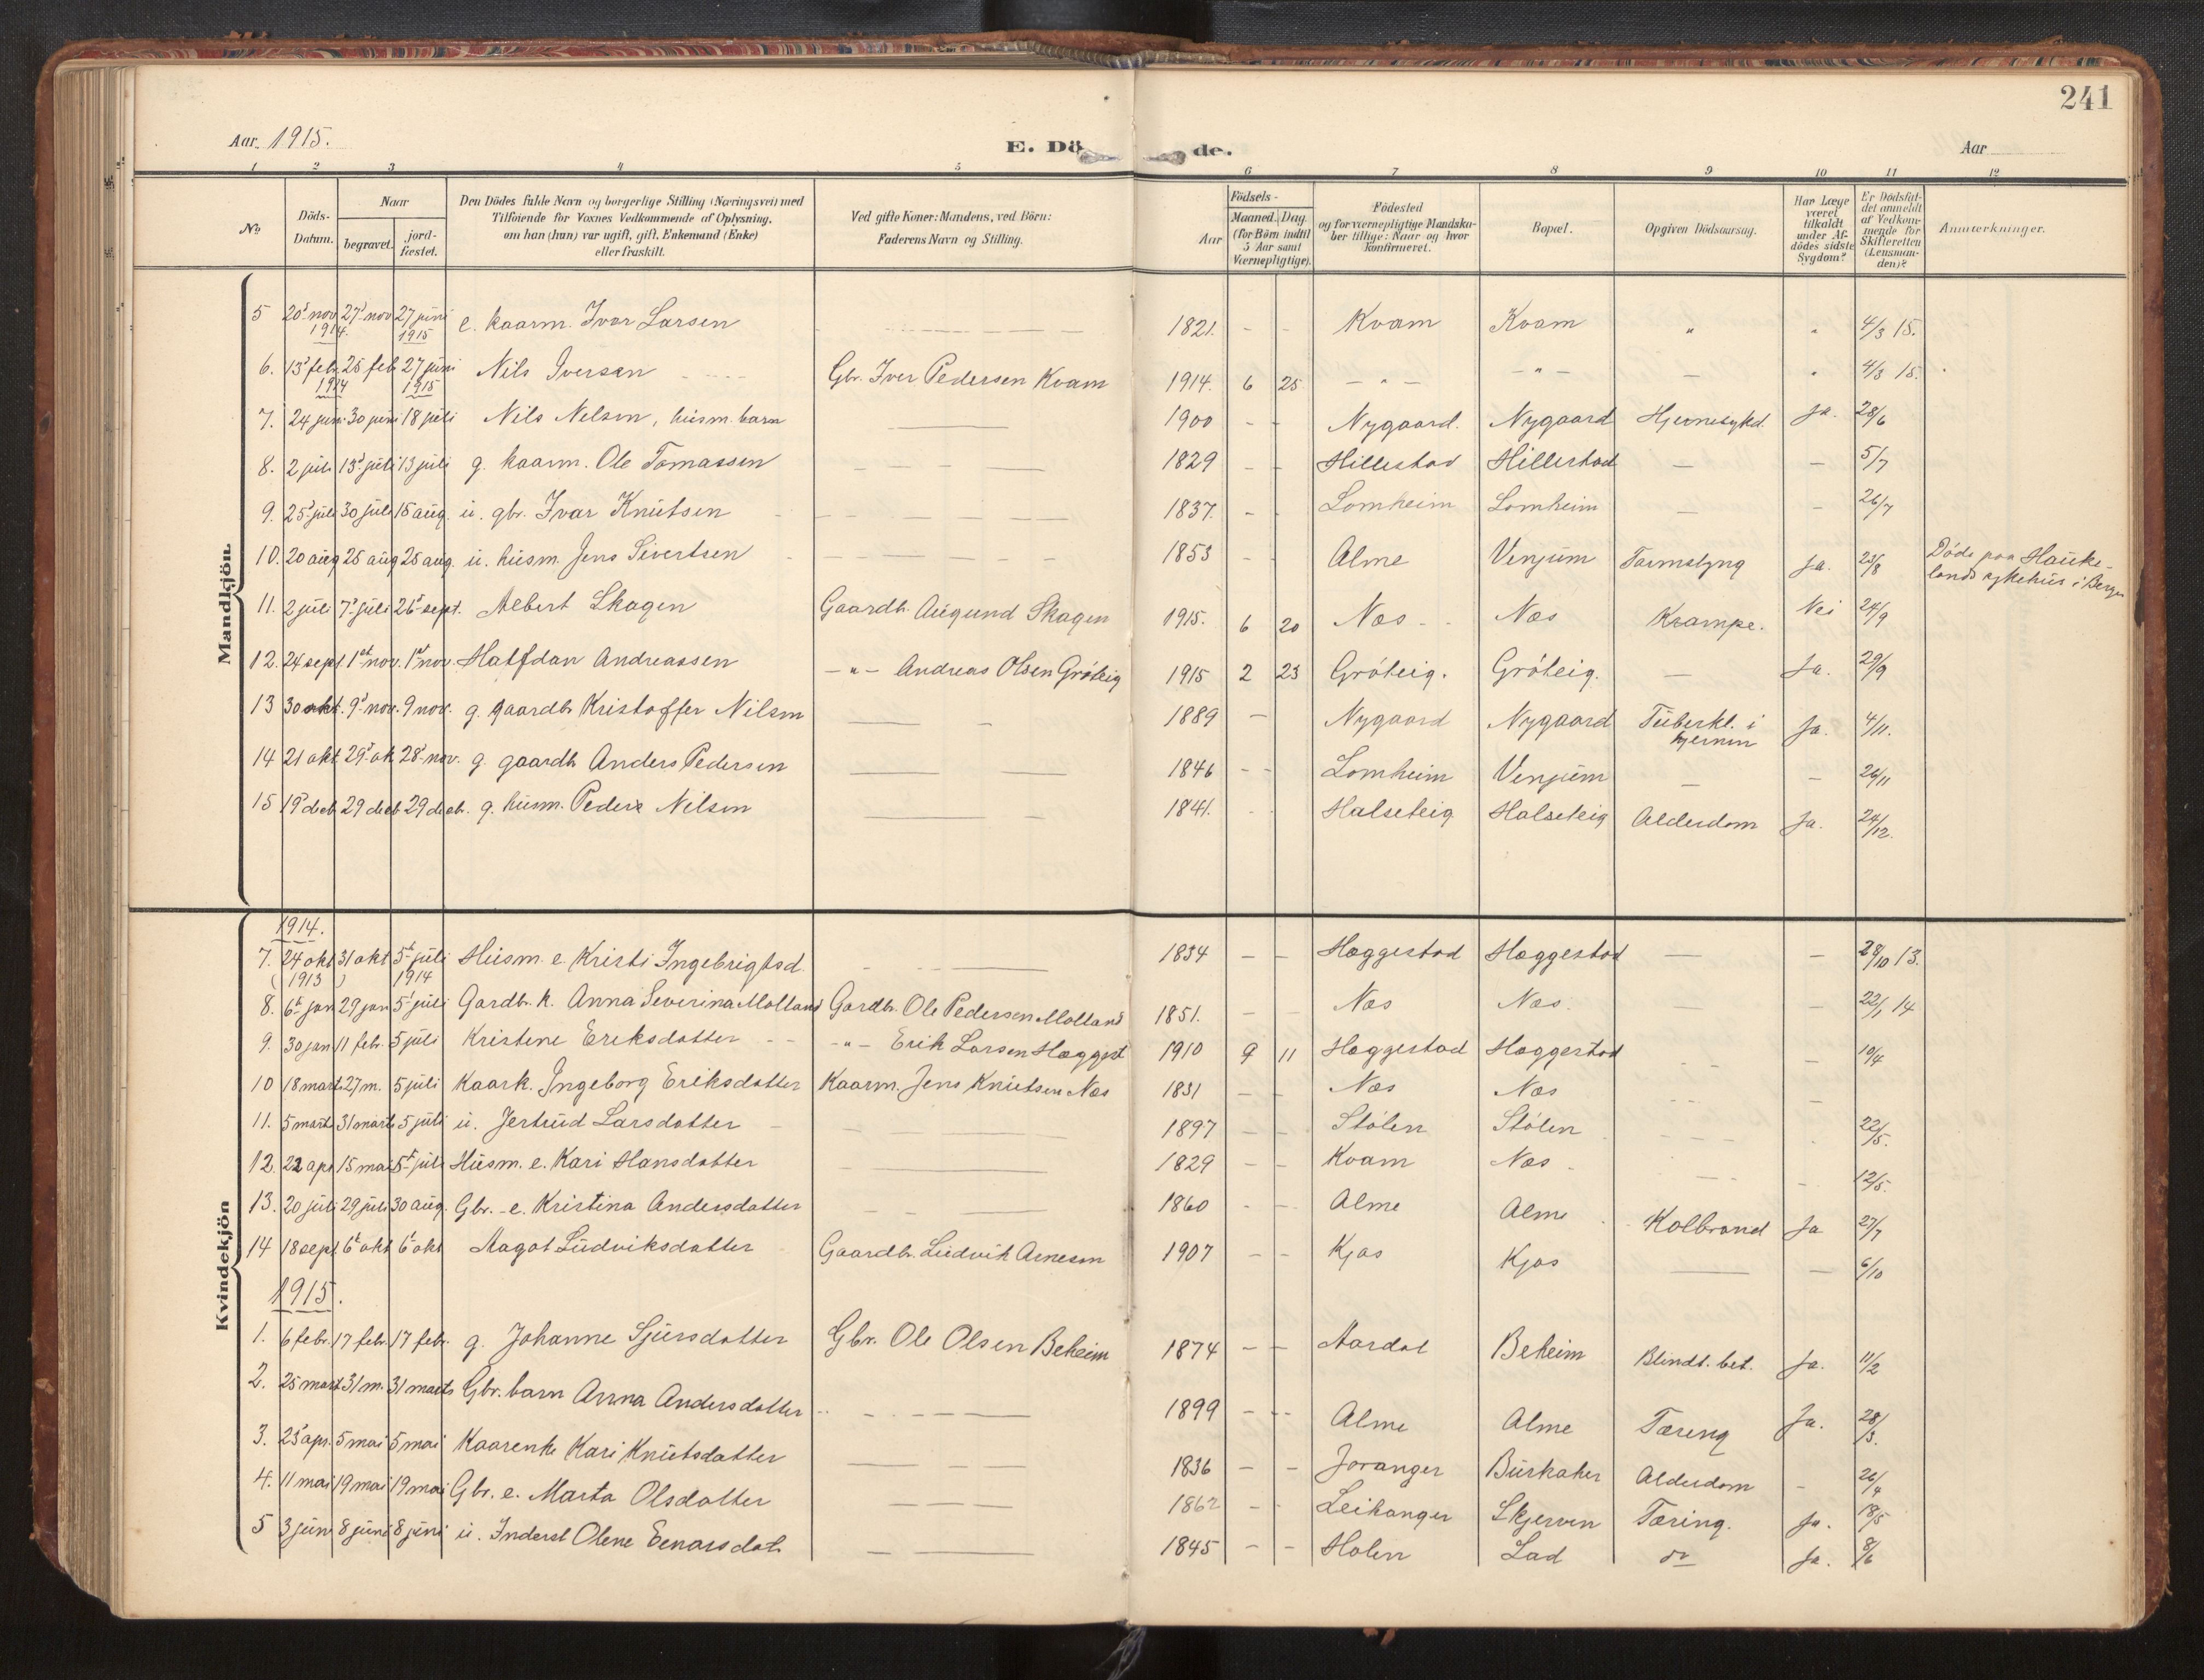 241
Aar 1915.
E. Dö de.
Aar
1 2 3 4 5 6 7 8 9 10 11 12
No
Döds-Datum.
Naar
begravet.
jord-fæstet.
Den Dödes fulde Navn og borgerlige Stilling (Næringsvei) med
Tilföiende for Voxnes Vedkommende af Oplysning,
om han (hun) var ugift, gift, Enkemand (Enke)
eller fraskilt.
Ved gifte Koner: Mandens, ved Börn:
Faderens Navn og Stilling.
Födsels-
Aar
Maaned. Dag.
(for Börn indtil
5 Aar samt
Værnepligtige).
Födested
og for værnepligtige Mandska-
ber tillige: Naar og hvor
konfirmeret.
Bopæl.
Opgiven Dödsaarsag.
Har Læge
været
tilkaldt
under Af-
dödes sidste
Sygdom?
Er Dödsfal-
det anmeldt
af Vedkom-
mende for
Skifteretten
(Lensman-
den)?
Anmærkninger.
Mandkjön.
5 20de nov 1914. 27de nov 27 juni 1915 e. kaarm. Ivar Larsen 1821. - - Kvam Kvam " " 4/3 15.
6. 13de feb. 1914 25 feb 27 juni 1915 Nils Iversen Gbr. Iver Pedersen Kvam 1914. 6 25 - " - - " - — " 4/3 15.
7. 24 juni 30 juni 18 juli Nils Nelson, husm. barn 1900 - - Nygaard. Nygaard Hjernesykd. Ja. 28/6
8. 2 juli 13de juli 13 juli g. kaarm. Ole Tomassen 1829 - - Hillestad Hillestad — - 5/7
9. 25de juli 30 juli 15 aug. u. gbr. Ivar Knutsen 1837. - - Lomheim Lomheim — - 26/7
10. 20 aug 25 aug 25 aug. u. husm. Jens Sivertsen 1853 - - Alme Venjum Tarmslyng Ja. 23/8 Döde paa Hauke-
lands sykehus i Bergen
11. 2 juli 7de juli 26de sept. Albert Skagen Gaardb. Augund Skagen 1915. 6 20 Næs Næs Krampe. Nei 24/9
12. 24 sept 1st nov. 1st nov. Halfdan Andreassen - " - Andreas Olsen Gröteig 1915 2 23 Gröteig. Gröteig. — Ja. 29/9
13 30 okt. 9de nov. 9 nov. g. gaardbr Kristoffer Nilsen 1889 - Nygaard Nygaard Tuberkl. i
hjernen Ja. 4/11.
14 21 okt 29de ok 28de nov. g. gaardb. Anders Pedersen 1846 - - Lomheim Venjum — - 26/11
15 19de decb 29 decb 29 decb. g. husm. Peder Nilsen 1841. - Halseteig Halseteig Alderdom Ja. 24/12.
Kvindekjön
1914.
7. 24 okt (1913) 31 okt 5te juli 1914 Husm. e. Kristi Ingebrigtsd. 1834 - - Hæggestad Hæggestad — - 28/10 13.
8. 6te jan 29 jan 5te juli Gardbr. k. Anna Severina Molland Gardbr. Ole Pedersen Molland 1851. - - Næs Næs. — - 22/1 14
9. 30 jan 11 febr. 5 juli Kristine Eriksdatter - " - Erik Larsen Hæggest 1910 9 11 Hæggestad Hæggestad - - 10/4
10 18 mart 27 m. 5 juli Kaark. Ingeborg Eriksdatter Kaarm. Jens Knutsen Næs 1831 - - Næs Næs - - -
11. 5 marts 31 marts 5 juli u. Jertrud Larsdatter 1897 - - Stölen Stölen - - - 22/5.
12. 22 apr 15 mai 5te juli Husm. e. Kari Hansdatter 1829 - - Kvam Næs - - - 12/5.
13. 20 juli 29 juli 30 aug. Gbr. e. Kristina Andersdatter 1860 - - Alme Alme Kolbrand Ja 27/7
14 18 sept 6te okt 6te okt Magot Ludviksdatter Gaardb. Ludvik Arnesen 1907 - - Kjøs Kjøs — — 6/10
1915.
1. 6 febr. 17 febr. 17 febr. g. Johanne Sjursdatter Gbr. Ole Olsen Beheim 1874 - - Aardal Beheim Blindt. bet. Ja. 11/2
2. 25 mart 31 m. 31 marts Gbr. barn Anna Andersdatter 1899 - - Alme Alme Tæring Ja. 28/3.
3. 23de apr. 5 mai 5 mai Kaarenke Kari Knutsdatter 1836 - - Joranger Burkaker Alderdom - 26/4
4. 11 mai 19 mai 19 mai Gbr. e. Marta Olsdatter 1862 - - Leikanger Skjerven Tæring. Ja. 18/5
5 3 juni 8 juni 8 juni u. Inderst Olene Eenarsdat 1845 - - Holen Lad do Ja. 8/6